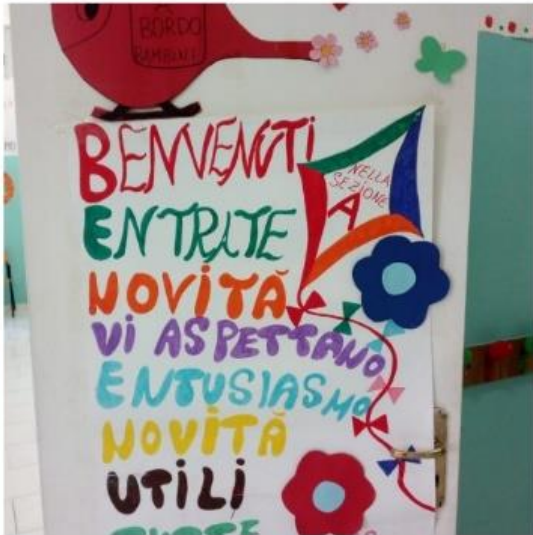 A
BORDO
BAMBINI
BENVENUTI
NELLA
SEZIONE
A
ENTRATE
NOVITÀ
VI ASPETTANO
ENTUSIASMO
NOVITÀ
UTILI